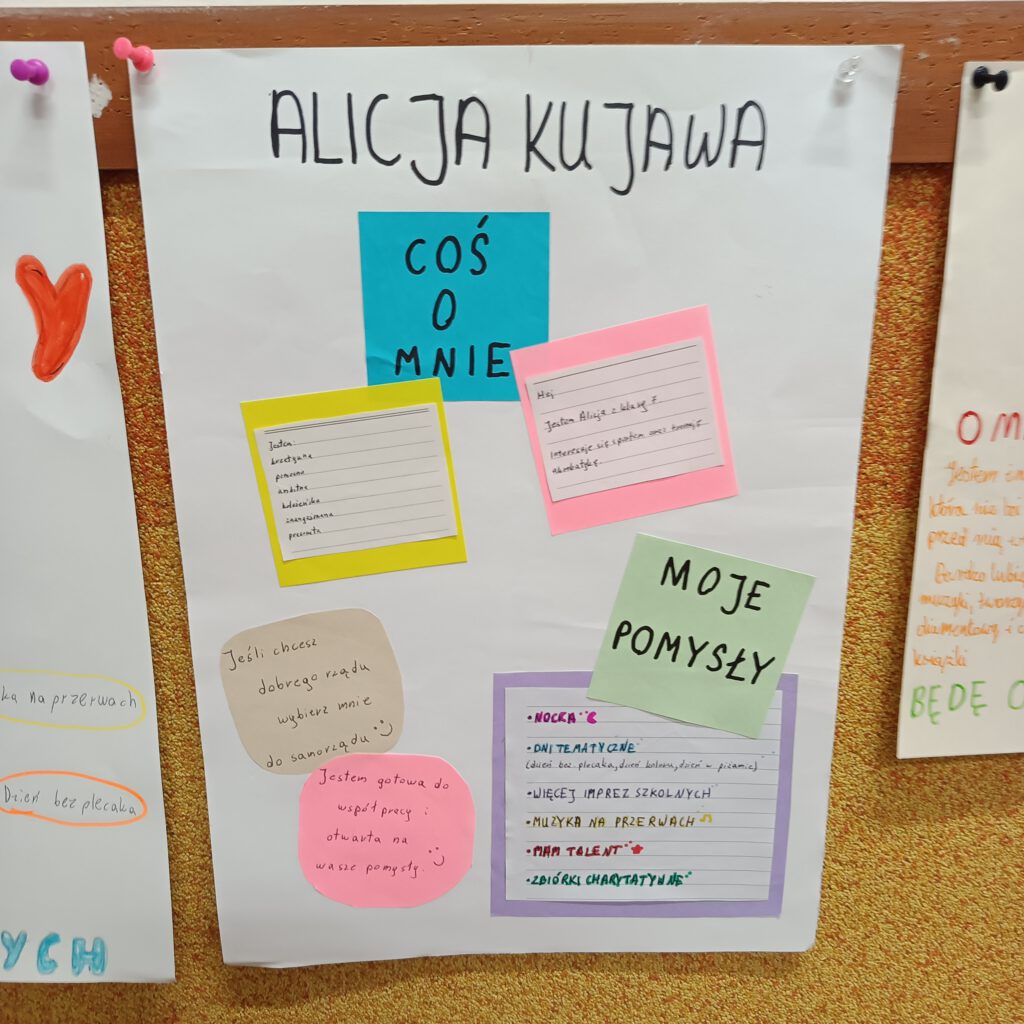 ALICJA KUJAWA
COŚ
O
MNIE
Hej
Jestem Alicja z klasy 7.
Interesuję się sportem oraz trenuję
akrobatykę.
Jestem:
kreatywna
pomocna
ambitna
koleżeńska
zaangażowana
Jeśli chcesz
dobrego rządu
wybierz mnie
do samorządu
Jestem gotowa do
współpracy i
otwarta na
wasze pomysły.
MOJE
POMYSŁY
• NOCKA
• DNI TEMATYCZNE
(dzień bez plecaka, dzień koloru, dzień w piżamie)
• WIĘCEJ IMPREZ SZKOLNYCH
• MUZYKA NA PRZERWACH
• MAM TALENT
• ZBIÓRKI CHARYTATYWNE
Y
ka na przerwach
Dzień bez plecaka
YCH
O M
Jestem
która nie
przed nią
Bardzo lubi
muzyki, tworzy
diamentową i
książki
BĘDĘ